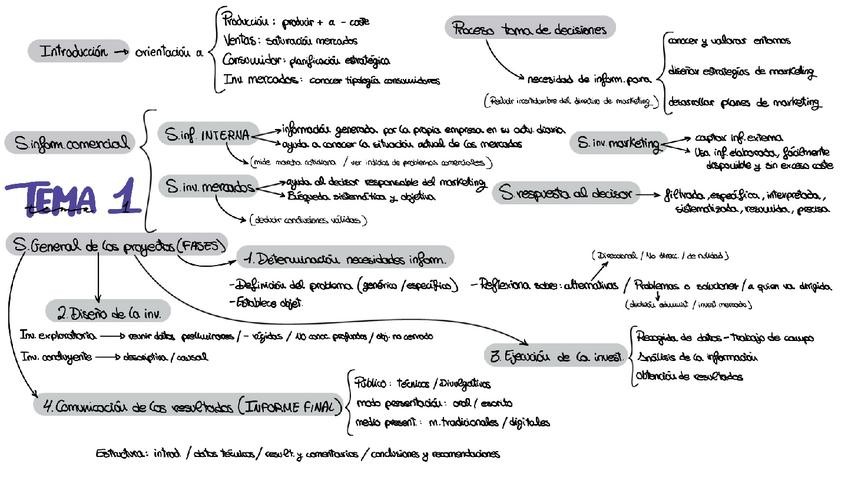 Introducción → orientación a
Producción: producir + a - coste
Ventas: saturación mercados
Consumidor: planificación estratégica
Inv mercados: conocer tipología consumidores
Proceso toma de decisiones
necesidad de inform. para
(Reducir incertidumbre del director de marketing.)
conocer y valorar entornos
diseñar estrategias de marketing
desarrollar planes de marketing
S.inform.comercial
S.inf. INTERNA
información generada por la propia empresa en su actu. diaria
ayuda a conocer la situación actual de los mercados
(mide marcha rutinaria / ver indicios de problemas comerciales)
S.inv.marketing
captar inf. externa
Usa inf. elaborada, fácilmente
disponible y sin exceso coste
S.inv. mercados
ayuda al decisor responsable del marketing
Búsqueda sistemática y objetiva
(deducir conclusiones válidas)
S.respuesta al decisor
filtrada, específica, interpretada,
sistematizada, resumida, precisa
TEMA 1
S.General de los proyectos (FASES)
1.Determinación necesidades inform.
-Definición del problema (genérico/específico)
-Establece objet.
-Reflexiona sobre: alternativas / Problemas a solucionar / a quien va dirigida
2.Diseño de la inv.
Inv. exploratoria → reunir datos preliminares / - rígidos / No conc. profundas / obj. no cerrado
Inv. concluyente → descriptiva / causal
3.Ejecución de la invest.
Recogida de datos - Trabajo de campo
Análisis de la información
Obtención de resultados
4.Comunicación de los resultados (INFORME FINAL)
Público: técnicos / Divulgativos
modo presentación: oral / escrito
medio present.: m.tradicionales / digitales
Estructura: introd. / datos técnicos / result. y comentarios / conclusiones y recomendaciones